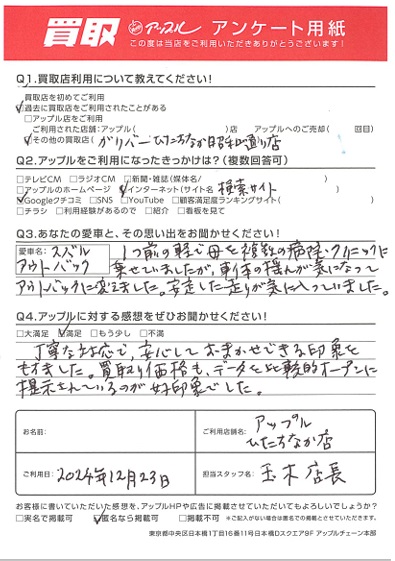 買取 アップル アンケート用紙
この度は当店をご利用いただきありがとうございます!
Q1.買取店利用について教えてください!
□買取店を初めてご利用
☑過去に買取店をご利用されたことがある
□アップル店をご利用
ご利用された店舗:アップル( )店 アップルへのご売却( 回目)
☑その他の買取店( ガリバーひたちなか昭和通り店
Q2.アップルをご利用になったきっかけは?(複数回答可)
□テレビCM □ラジオCM □新聞・雑誌(媒体名/ )
□アップルのホームページ ☑インターネット(サイト名 検索サイト
☑Googleクチコミ □SNS □YouTube □顧客満足度ランキングサイト( )
□チラシ □利用経験があるので □紹介 □看板を見て
Q3.あなたの愛車と、その思い出をお聞かせください!
愛車名:スバル アウトバック
1つ前の軽で母を複数の病院・クリニックに
乗せていましたが、車体の揺れが気になって
アウトバックに変えました。安定した走りが気に入っていました。
Q4.アップルに対する感想をぜひお聞かせください!
□大満足 ☑満足 □もう少し □不満
丁寧な対応で、安心しておまかせできる印象を
もちました。買取り価格も、データを比較的オープンに
提示されているのが好印象でした。
お名前:
ご利用店舗名: アップル ひたちなか店
ご利用日: 2024年12月23日
担当スタッフ名: 玉木店長
お客様に書いていただいた感想を、アップルHPや広告に掲載させていただいてもよろしいでしょうか?
□実名で掲載可 ☑匿名なら掲載可 □掲載不可 *ご記入がない場合は匿名での掲載とさせていただきます。
東京都中央区日本橋1丁目16番11号日本橋Dスクエア9F アップルチェーン本部